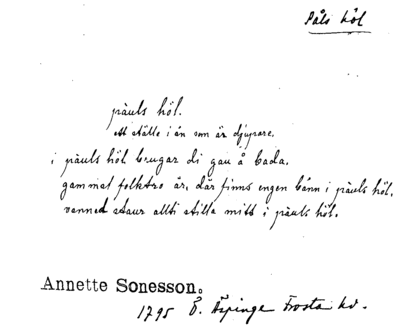 Påls höl
pàuls höl.
Ett ställe i ån som är djupare.
i pàuls höl brugar di gau å bada.
gammal folktro är, där finns engen bånn i pàuls höl.
vanned staur allti stilla mitt i pàuls höl.
Annette Sonesson.
1795 Ö. Äspinge Frosta hd.